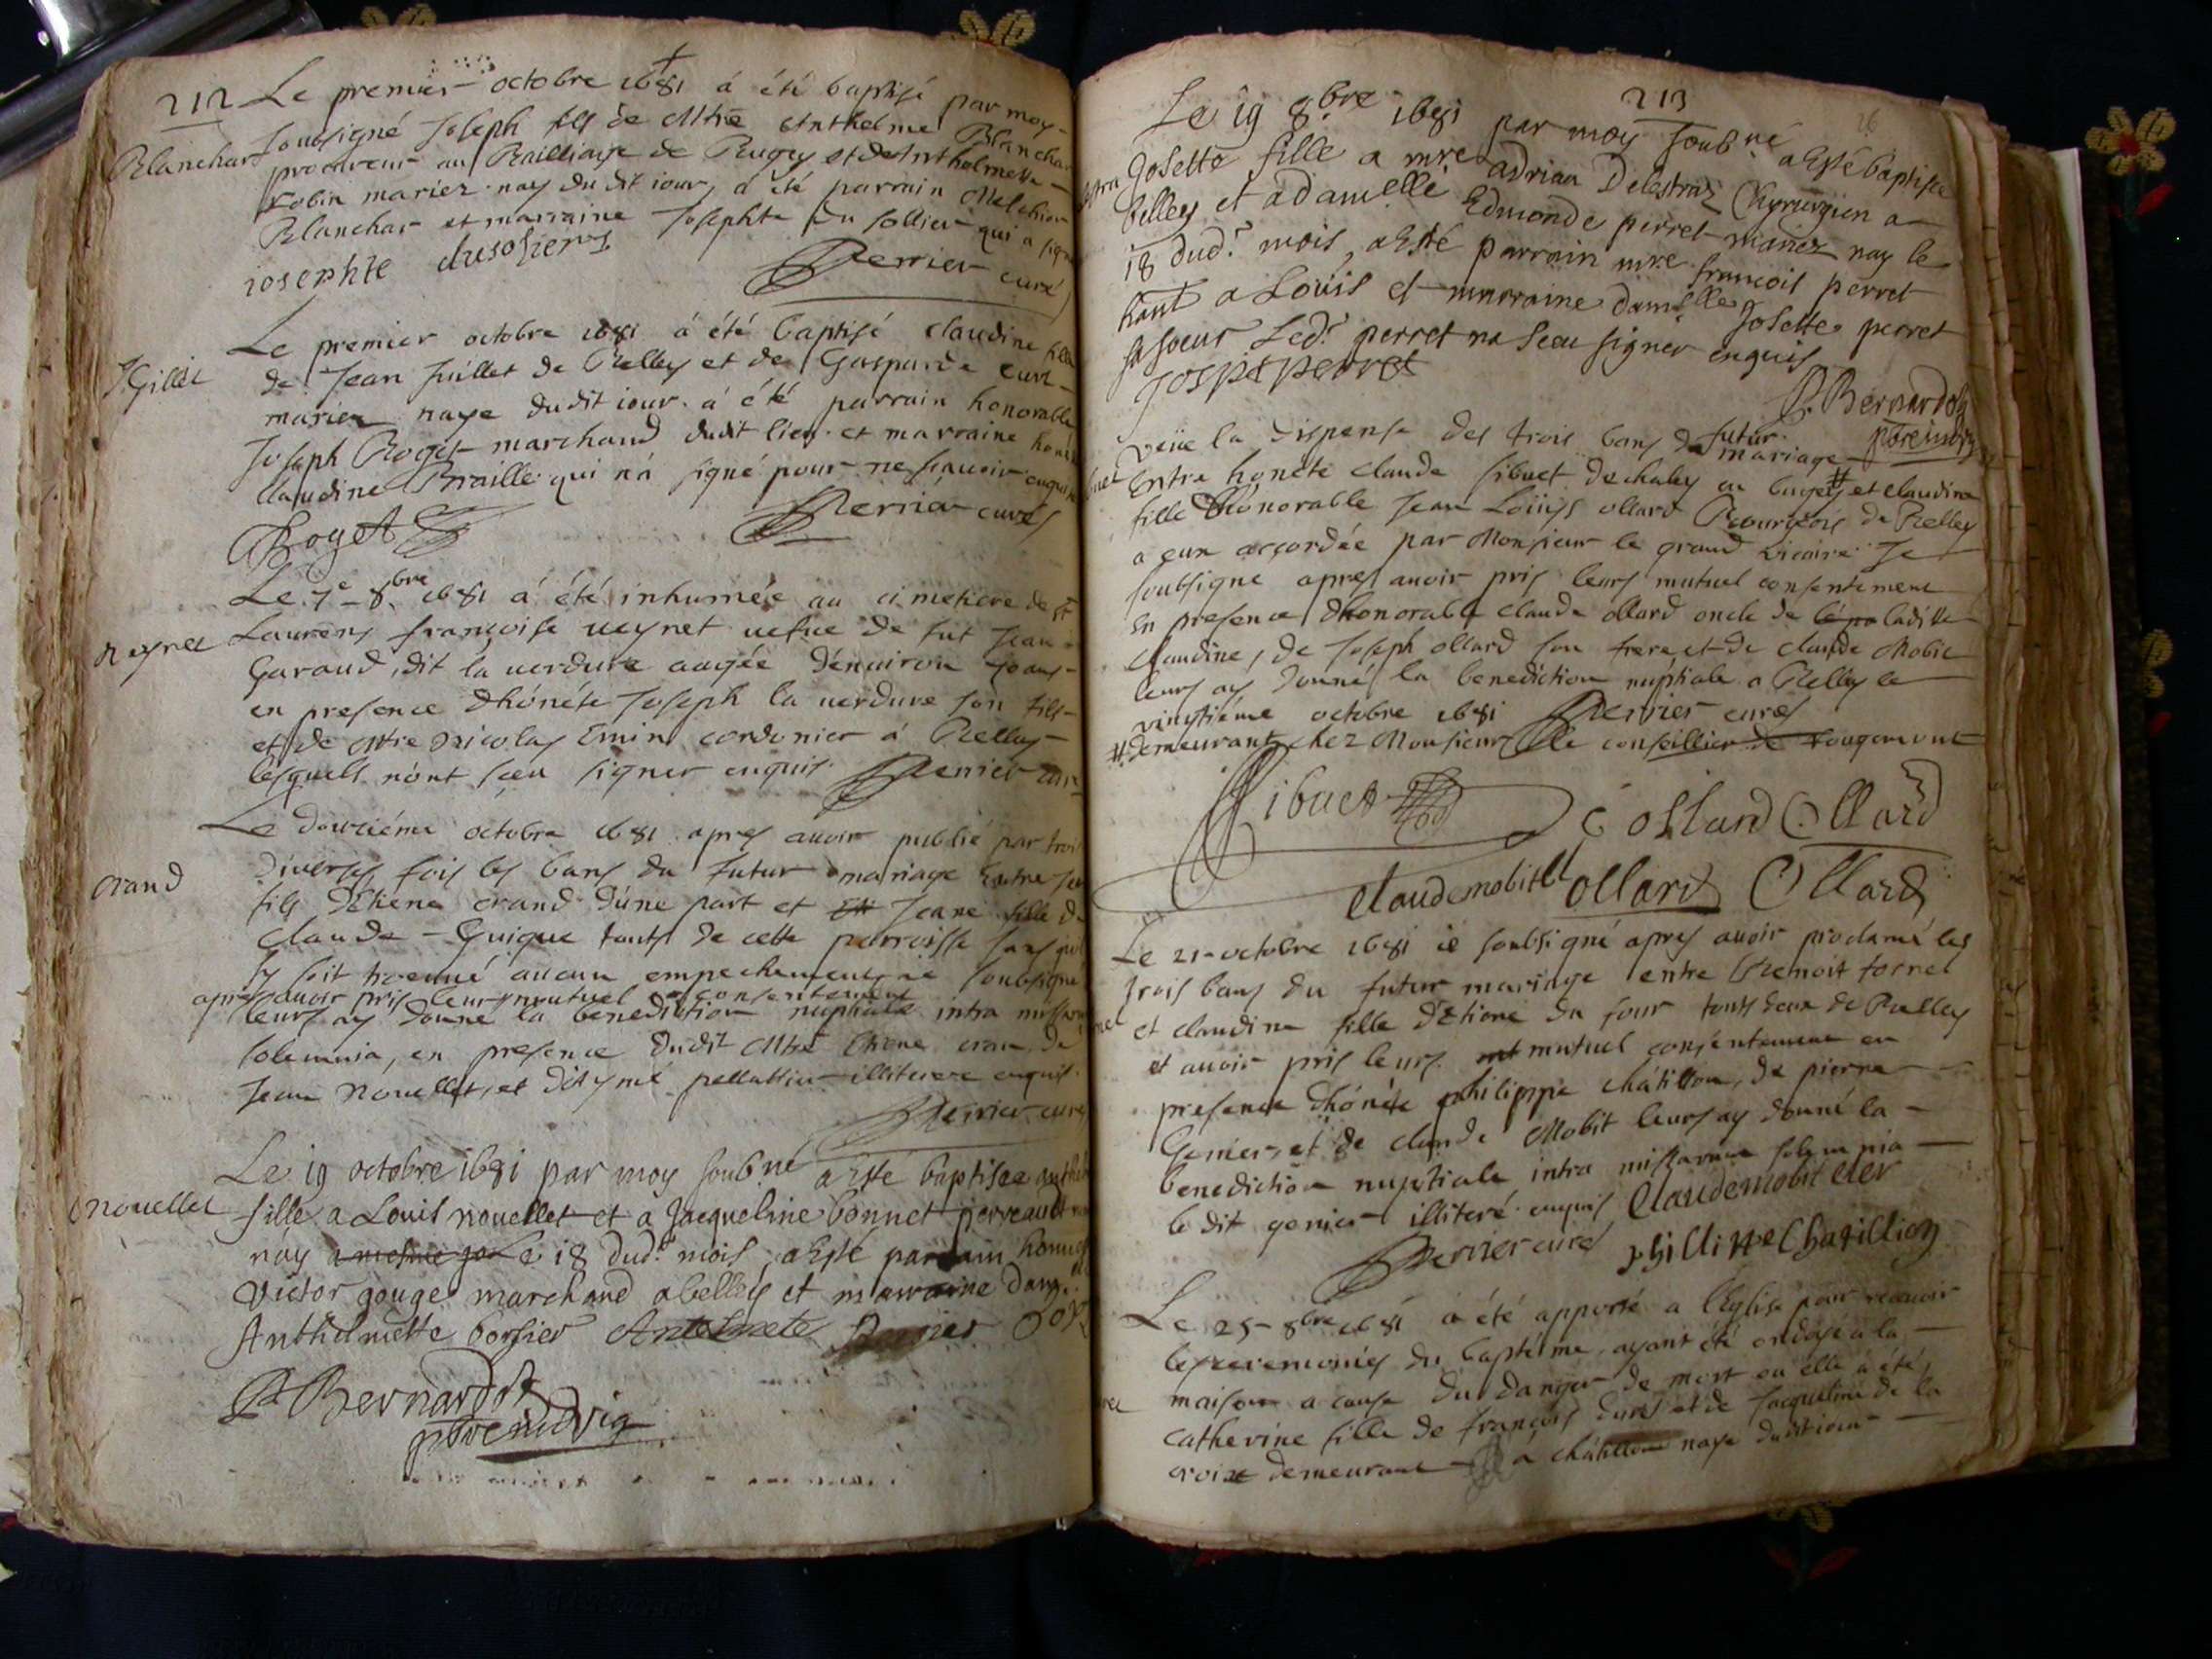 212
Le premier octobre 1681 á été baptisé par moy
Blanchar
soubsigné Joseph fils de Mtre Anthelme Blanchar
procureur au Bailliage de Bugey et de Anthelmette
Robin mariez nay du dit iour, a été parrain Melchior
Blanchar et marraine Josephte du sollier qui a signé
iosephte dusoliers
Perrier curé
Le premier octobre 1681 á été baptisé Claudine fille
Gillet
de Jean Juillet de Belley et de Gasparde Curt
mariez naye dudit iour. a été parrain honorable
Joseph Roget marchand dudit lieu et marraine honé
Claudine Braille qui n'á signé pour ne scauoir enquise
Roget
Perrier curé
Le 7e 8bre 1681 á été inhumée au cimetiere de St
Reynet
Laurens françoise ueynet uefue de fut Jean
Garaud, dit la uerdure aagée d'enuiron 70 ans
en presence dhonéte Joseph la uerdure son fils
et de Mtre Nicolas Emin cordonier á Belley
lesquels n'ont sceu signer enquis. Perrier curé
Le douziéme octobre 1681 apres auoir publié par trois
diverses fois les bans du futur mariage Entre
crand
fils d'Etiene crand d'úne part et Jeane fille de
Claude Guigue touts de cette parroisse sans qu'il
sy soit trouué aucun empechement ie soubsigné
apres auoir pris leurs mutuel consentement
leurs ay donné la benediction nuptiale intra missarum
solemnia, en presence dudit Mtre Etiene cran de
Jean Nouellet, et d'Aymé pellattier illiterere enquis.
Perrier curé
Le 19 octobre 1681 par moy soubné a Este baptisee anthel
Nouellet
fille a Louis nouellet et a Jacqueline bonnet perreault
nay a mesme jo Le 18 dud.t mois, a Esté parrain honné
Victor gouge marchand a belley et marraine dam.
Anthelmette borsier Antelmete
P Bernardot
pbre indvig
213
Le 19 8.bre 1681 par moy soub.né a Esté baptisée
Josette fille a mre adrian Delestraz Chyrurgien a
belley et a damelle Edmonde perret mariez nay le
18 dud.t mois, a Esté parrain mre françois perret
hant a Louis et marraine damelle Josette perret
sa soeur Led.t perret na sceu signer enquis
Jospt perret
P. Bernardot
pbre indvig
Veüe la dispense des trois bans de futur mariage
Entre honéte Claude Sibuet de chaley en bugey # et Claudine
fille d'hónorable Jean Loüys ollard Bourgeois de Belley
a eux accordée par Monsieur le grand vicaire Je
soubsigné apres auoir pris leurs mutuel consentement
En presence dhonorable Claude ollard oncle de laditte
Claudine, de Joseph ollard son frere et de Claude Mobit
leurs ay donné la benediction nuptiale a Belley le
vingtiéme octobre 1681 Perrier curé
# demeurant chez Monsieur le conseillier de fougemont
Sibuet C ollard Ollard
Claudemobit ollard Ollard
Le 21 octobre 1681 ie soubsigné apres auoir proclamé les
trois bans du futur mariage entre Benoit fornel
et claudine fille d'Etiene du four touts deux de Belley
et auoir pris leurs mutuel consentement en
presence dhónéte philippe châtillon, de pierre
Genier, et de claude Mobit leurs ay donné la
benediction nuptiale intra missarum solemnia
le dit genier illiteré enquis Claudemobit cler
Perrier curé phillippe Chatillion
Le 25 8bre 1681 á été apporté a l'Eglise pour receuoir
les ceremonies du baptéme, ayant été ondoyé a la
maison a cause du danger de mort ou elle á été
catherine fille de françois durel et de Jacqueline de la
croix demeurant á châtillon naye dudit iour